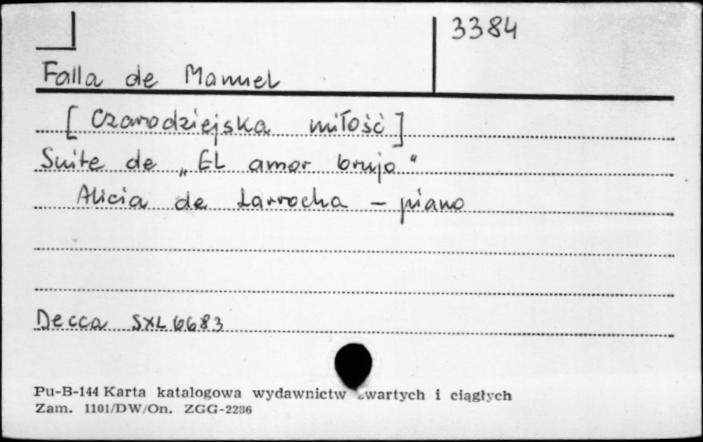 3384
Falla de Manuel
[Czarodziejska miłość]
Suite de „El amor brujo"
Alicia de Larrocha – piano
Decca SXL 6683
Pu-B-144 Karta katalogowa wydawnictw zwartych i ciągłych
Zam. 1101/DW/On. ZGG-2286